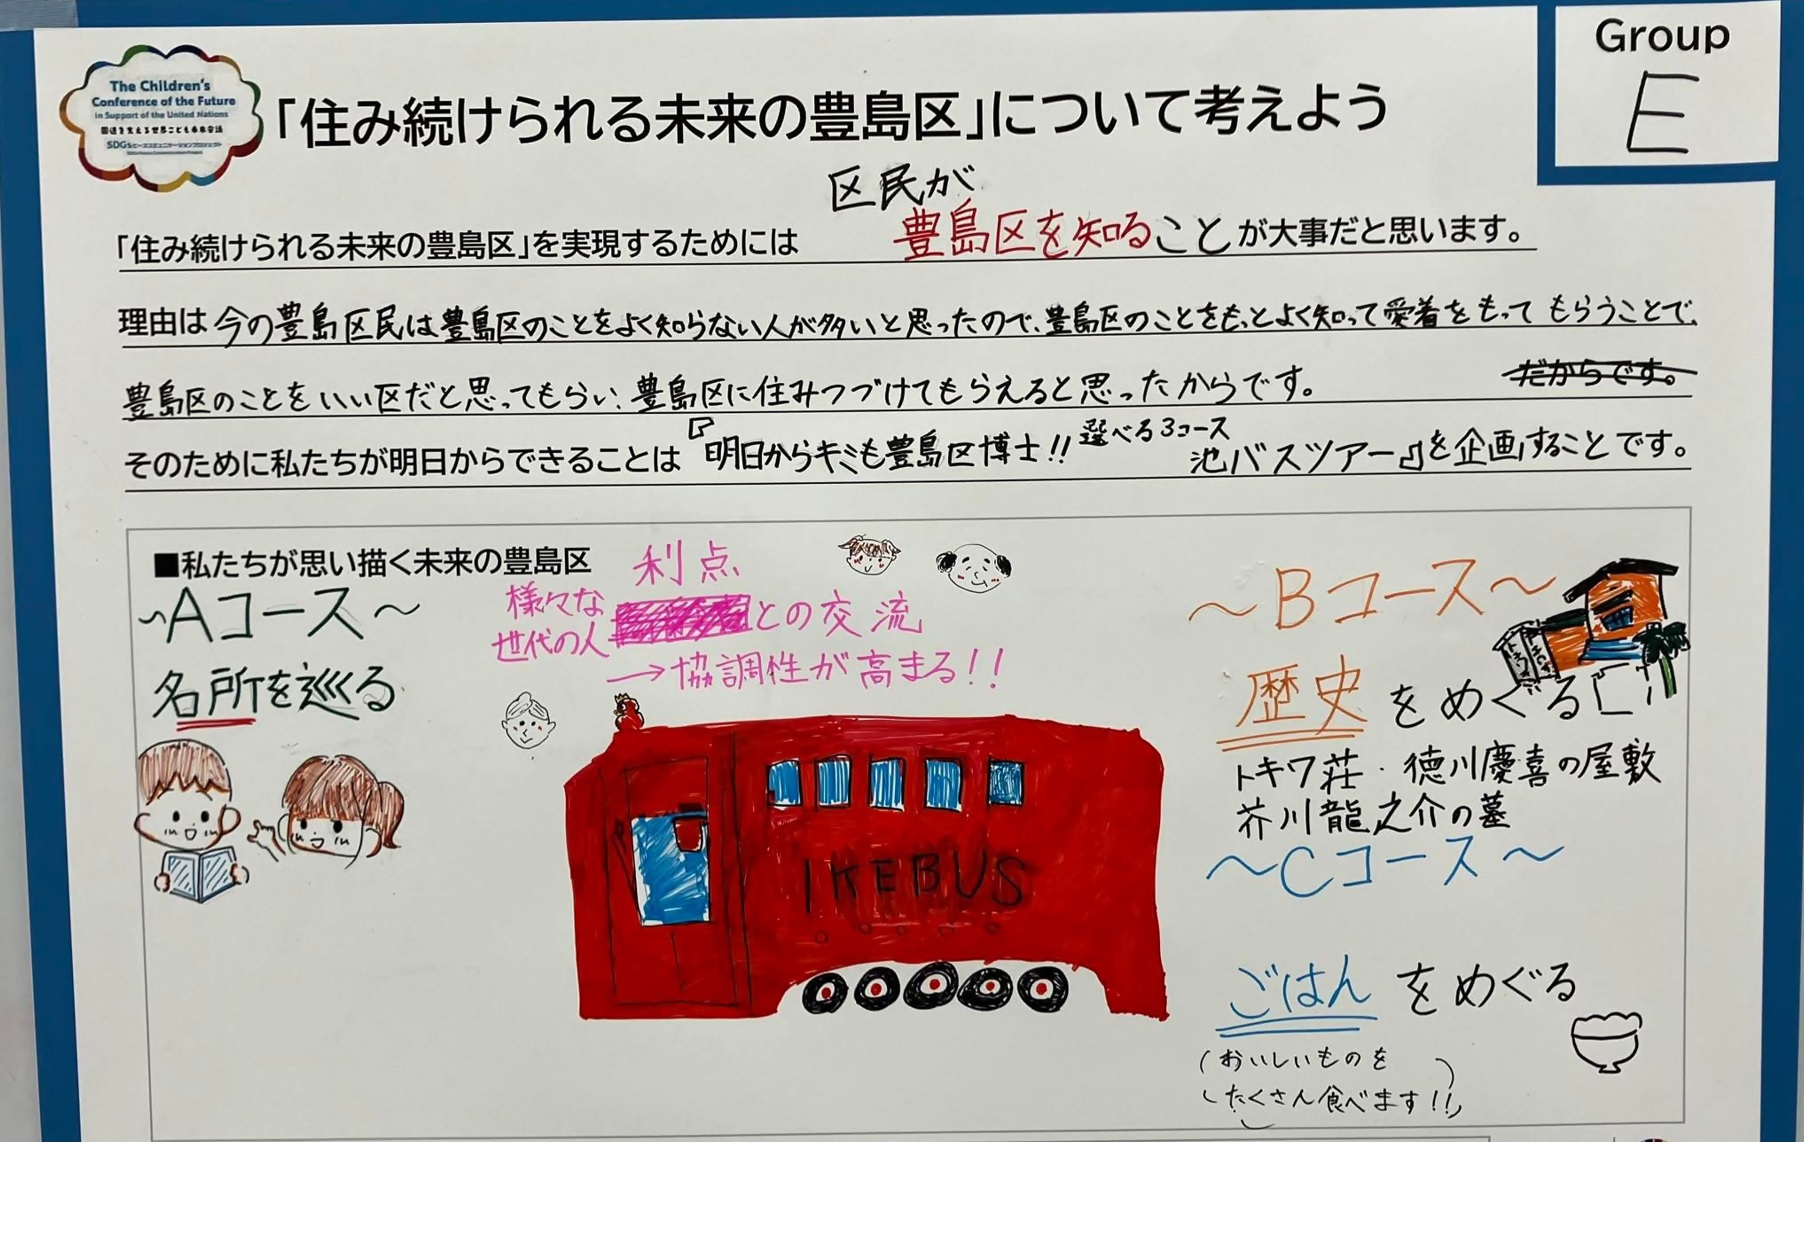 Group
E
The Children's
Conference of the Future
in Support of the United Nations
国連を支える世界こども未来会議
「住み続けられる未来の豊島区」について考えよう
区民が
「住み続けられる未来の豊島区」を実現するためには 豊島区を知ることが大事だと思います。
理由は今の豊島区民は豊島区のことをよく知らない人が多いと思ったので、豊島区のことをもっとよく知って愛着をもってもらうことで、
豊島区のことをいい区だと思ってもらい、豊島区に住みつづけてもらえると思ったからです。
だからです。
そのために私たちが明日からできることは『明日からキミも豊島区博士!! 選べる3コース
池バスツアー』を企画することです。
■私たちが思い描く未来の豊島区
~Aコース~
名所を巡る
利点
様々な
世代の人との交流
→協調性が高まる!!
IKEBUS
~Bコース~
歴史をめぐる
トキワ荘・徳川慶喜の屋敷
芥川龍之介の墓
~Cコース~
ごはんをめぐる
(おいしいものを
たくさん食べます!!)